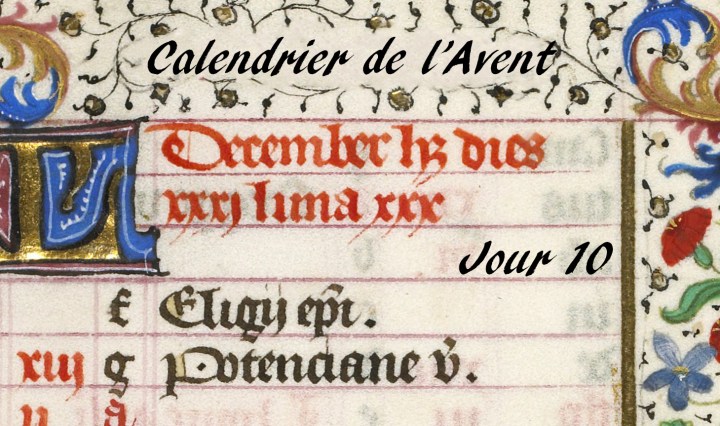 Calendrier de l'Avent
KL
December hꝫ dies
xxxj luna xxx
Jour 10
f Eligij ep̄i.
xiij g Potenciane v̄.
ii a